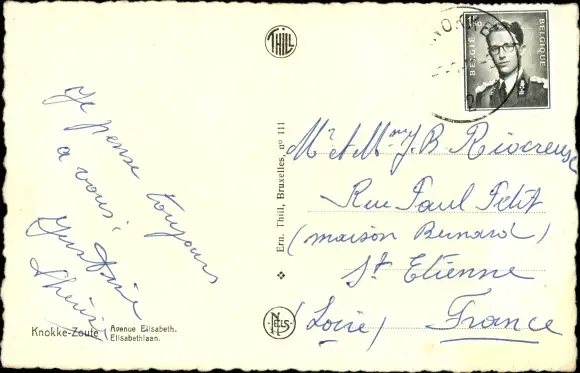 THILL
KNOKKE
BELGIË
BELGIQUE
Je pense toujours
a vous.
Mr et Mme J.B Riocreux
Rue Paul Petit
(maison Bernard)
St Etienne
(Loire) France
Ern. Thill, Bruxelles, no 111
NELS
Knokke-Zoute
Avenue Elisabeth.
Elisabethlaan.